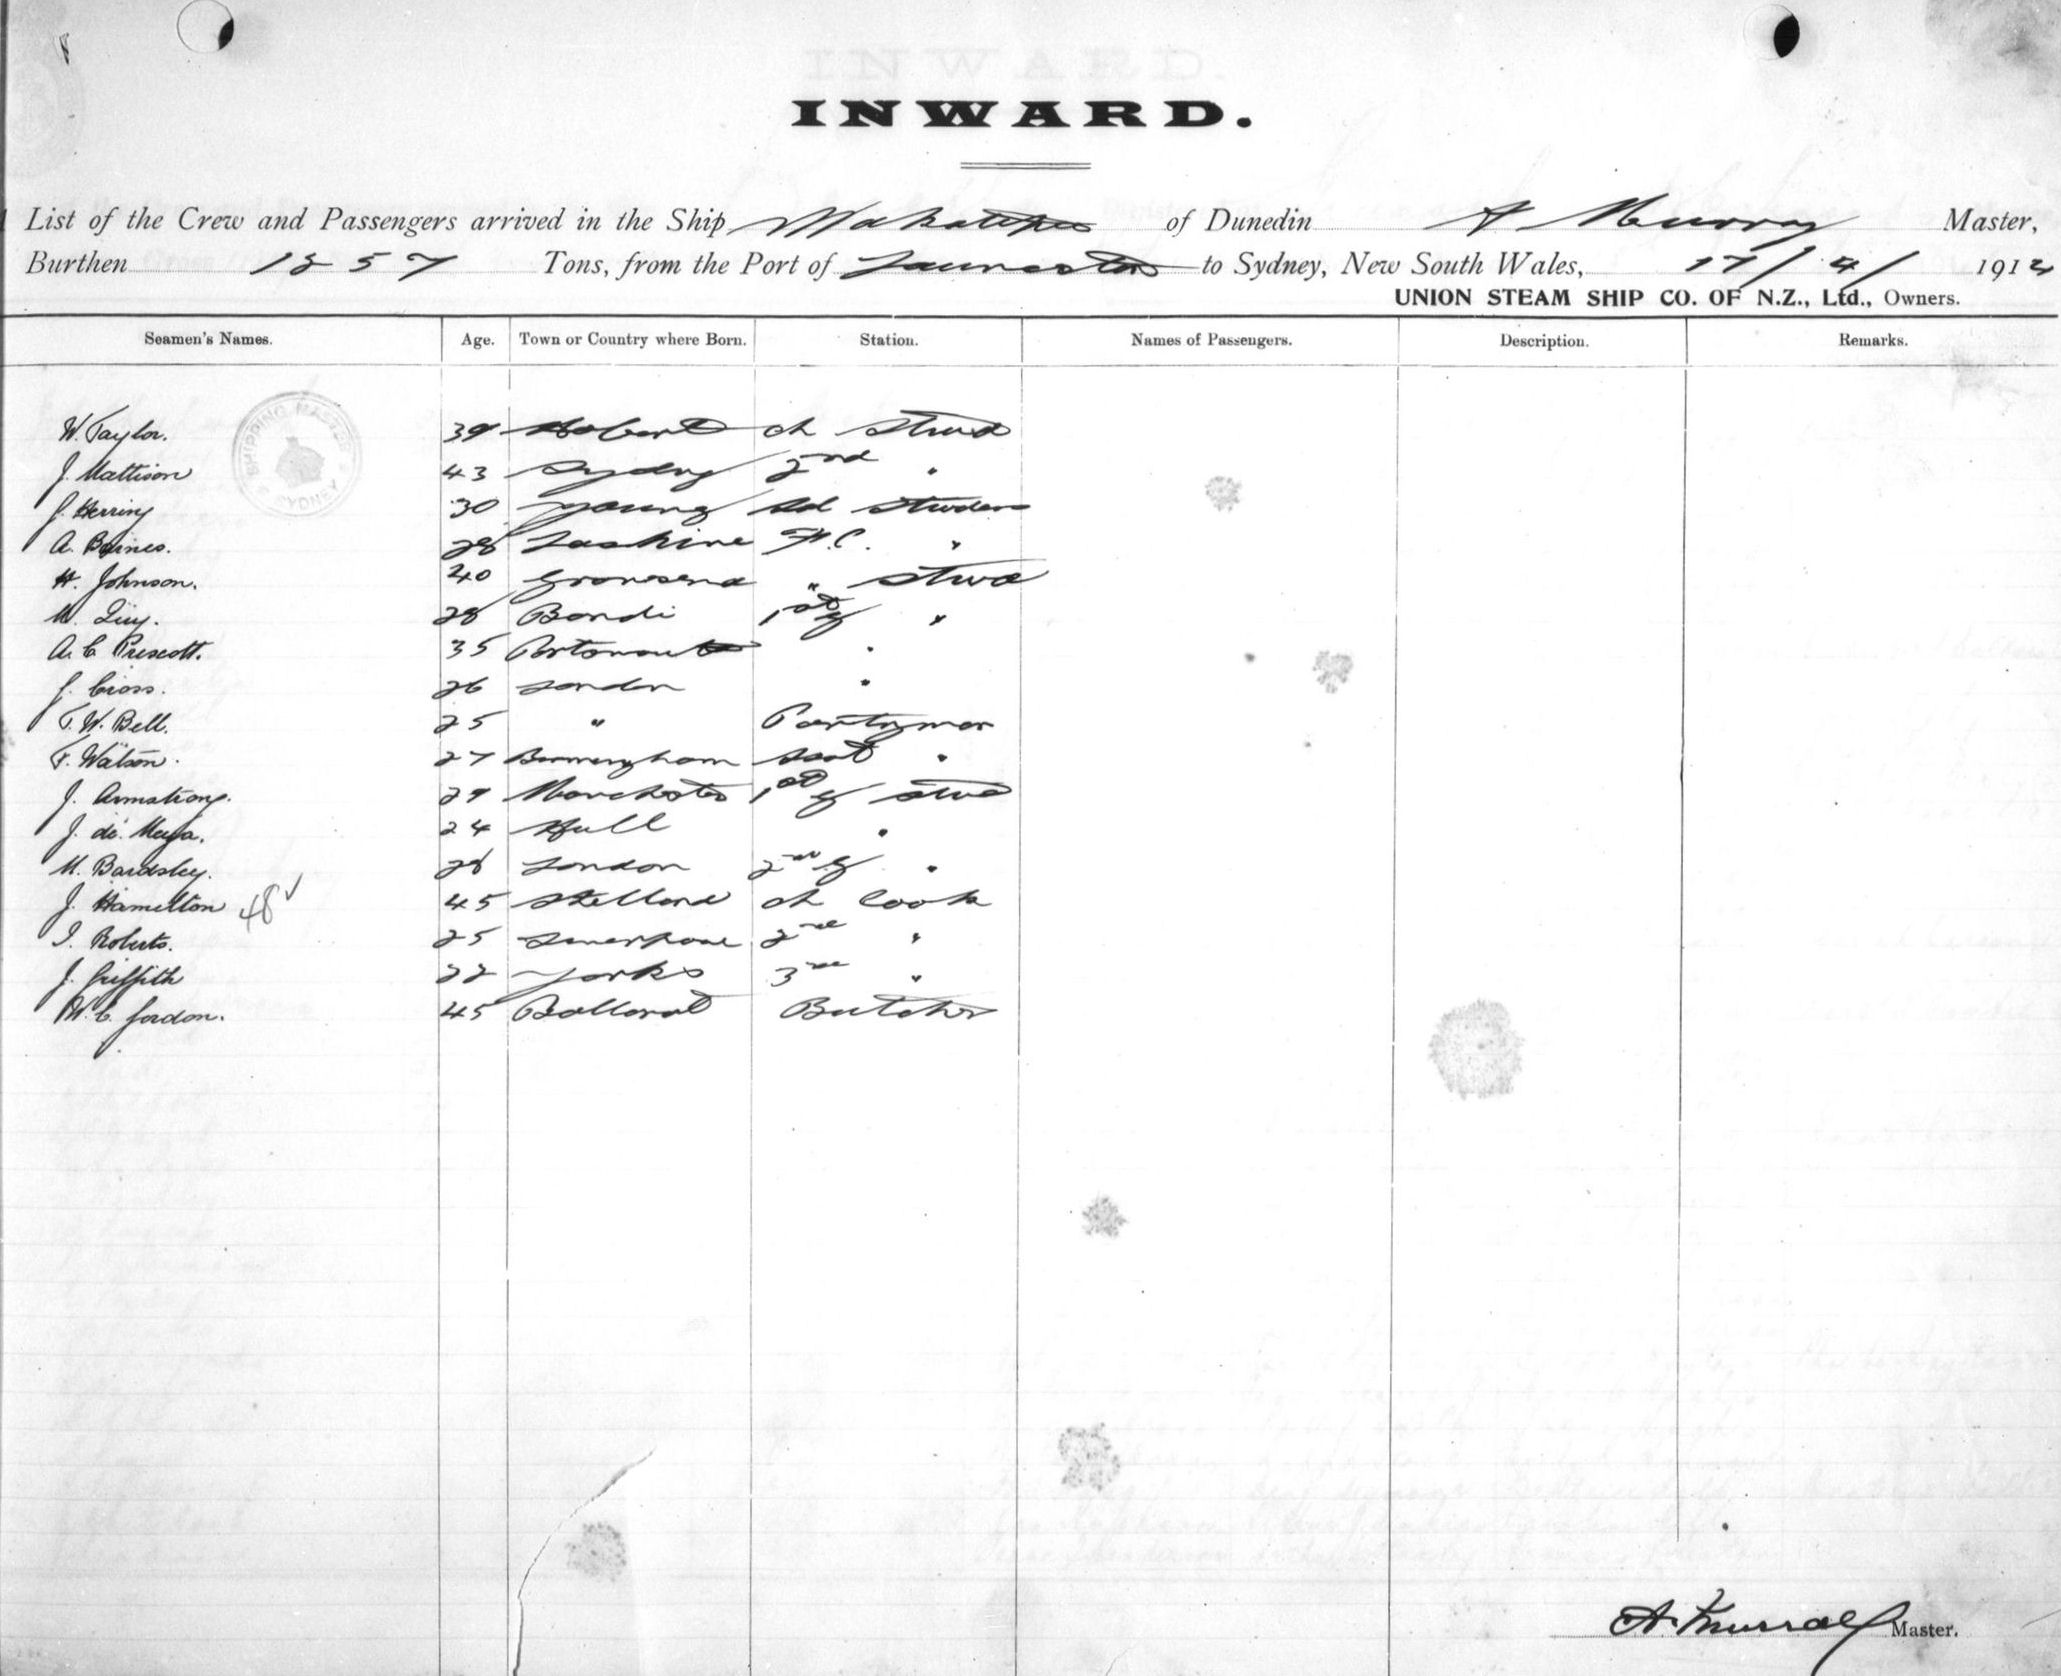 INWARD.
List of the Crew and Passengers arrived in the Ship Wakatipu of Dunedin A Murray Master,
Burthen 1257 Tons, from the Port of Launceston to Sydney, New South Wales, 17/4/ 1912
UNION STEAM SHIP CO. OF N.Z., Ltd., Owners.
Seamen's Names. Age. Town or Country where Born. Station. Names of Passengers. Description. Remarks.
SHIPPING MASTER SYDNEY
W. Taylor. 39 Hobart ch Stwd
J. Mattison 43 Sydney 2nd "
J. Herring 30 Young Sd Studess
A. Baines. 28 F.C. "
H. Johnson. 40 Gravesend " Stwd
M. 28 Bondi 1st "
A. C. Prescott. 35 Portsmouth "
J. Cross. 26 London "
T. W. Bell. 25 " Pantryman
F. Watson. 27 Birmingham asst "
J. Armstrong. 29 Manchester 1st Stwd
J. de. 24 Hull "
M. Bardsley. 28 London 2nd "
J. Hamilton 48 ✓ 45 Shetland ch Cook
I. Roberts. 25 Liverpool 2nd "
J. Griffith 22 Yorks 3rd "
W. C. Gordon. 45 Ballarat Butcher
A. Murray Master.